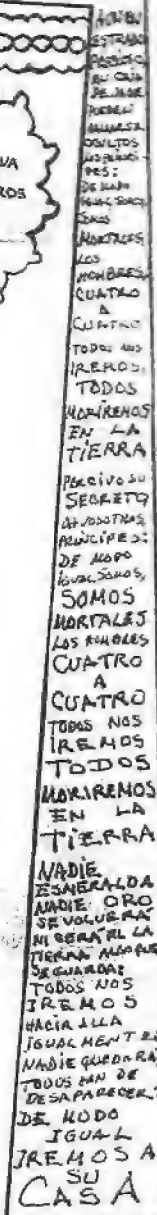 VA
ROS
AUN EN
ESTRADO
PRECIOSO
EN CAJA
DE JADE
PUEDEN
HALLARSE
OCULTOS
LOS PRINCI-
PES:
DE MODO
IGUAL SOMOS,
SOMOS
MORTALES
LOS
HOMBRES,
CUATRO
A
CUATRO
TODOS NOS
IREMOS,
TODOS
MORIREMOS
EN LA
TIERRA
PERCIVO SU
SECRETO
PRINCIPES:
DE MODO
IGUAL SOMOS,
SOMOS
MORTALES
LOS HOMBRES
CUATRO
A
CUATRO
TODOS NOS
IREMOS
TODOS
MORIREMOS
EN LA
TIERRA
NADIE
ESMERALDA
NADIE ORO
SE VOLVERRA
NI SERA EL LA
TIERRA ALGO QUE
SE GUARDA:
TODOS NOS
IREMOS
HACIA ALLA
IGUALMENTE
NADIE QUEDARA,
TODOS HAN DE
DESAPARECER:
DE MODO
IGUAL
IREMOS A
SU
CASA